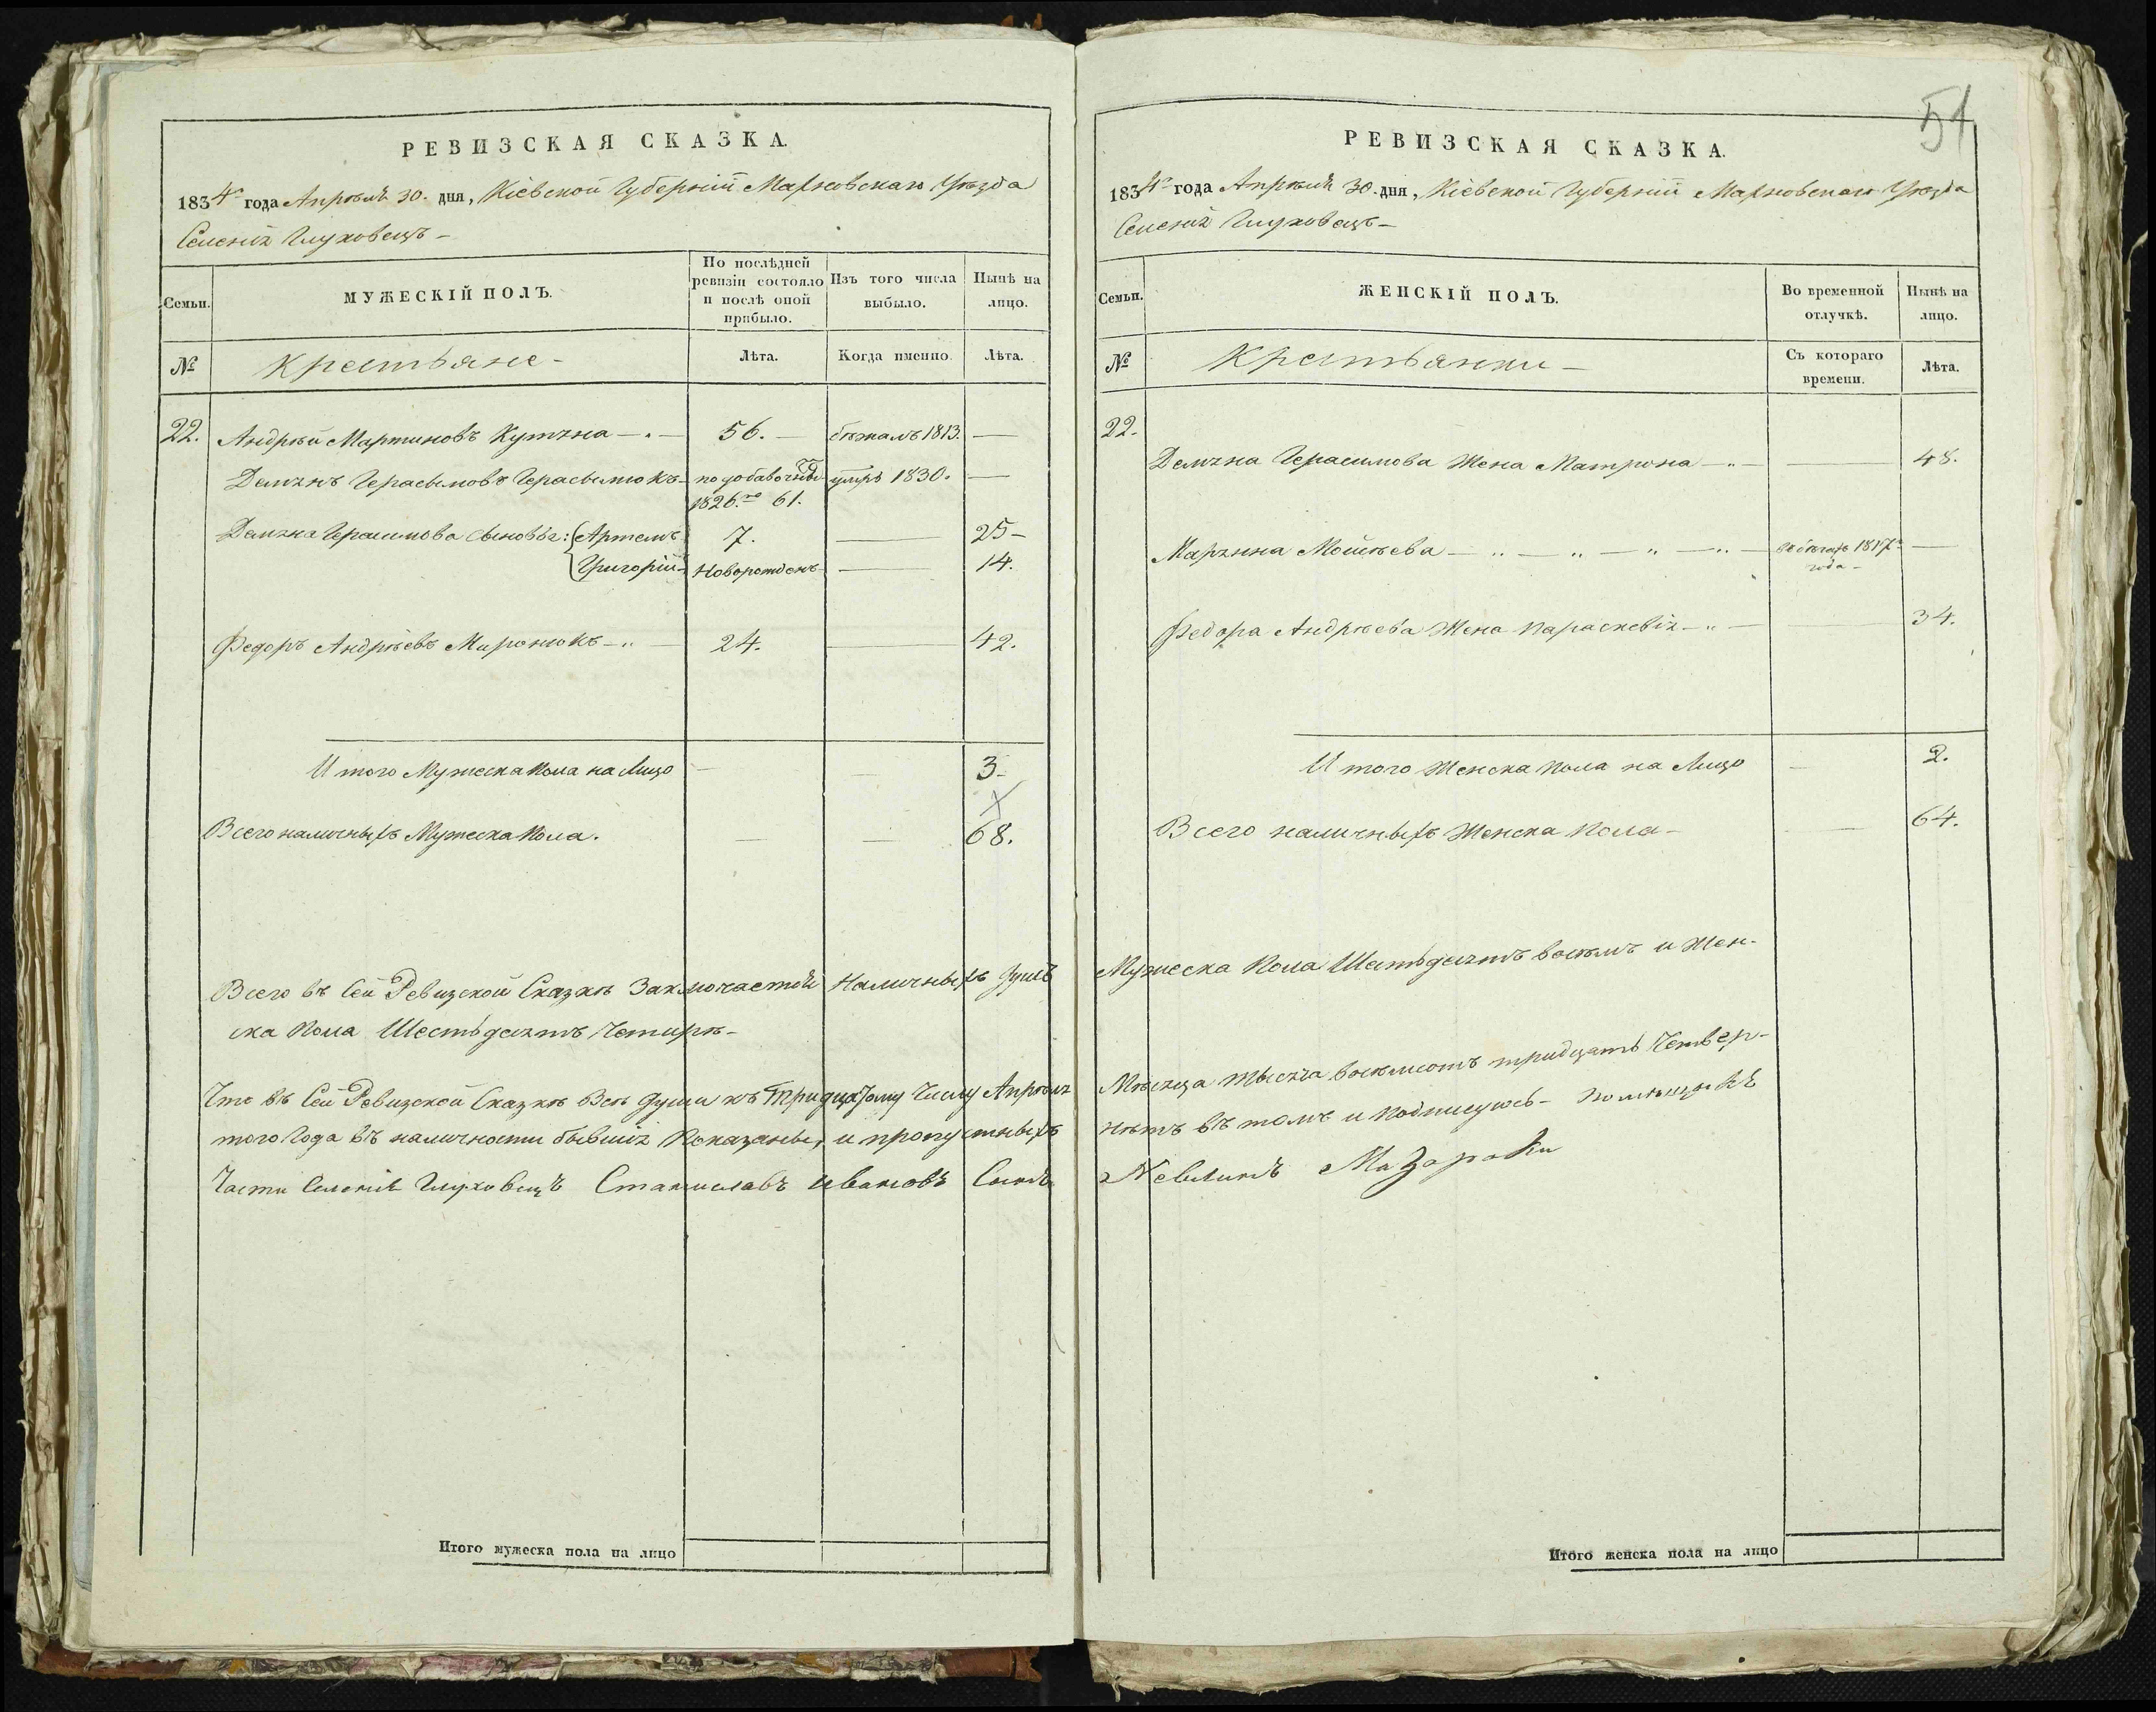 РЕВИЗСКАЯ СКАЗКА.
1834 года Апрѣля 30. дня, Кіевской Губерніи Махновскаго Уѣзда
Селенія Глуховецъ –
Семьи.
МУЖЕСКІЙ ПОЛЪ.
По послѣдней ревизіи состояло и послѣ оной прибыло.
Изъ того числа выбыло.
Нынѣ на лицо.
№
Крестьяне –
Лѣта.
Когда именно.
Лѣта.
22. Андрѣй Мартиновъ 56. – бѣжалъ 1813. —
Демянъ Герасымовъ Герасымюкъ – по добавочной умре 1830. —
1826.го 61.
Демяна Герасимова сыновья: Артемъ 7. — 25 –
Григорій – Новорожденъ — 14.
Федоръ Андрѣевъ Миронюкъ – 24. — 42.
Итого Мужеска пола на Лицо — — 3 –
Всего наличныхъ Мужеска пола. — — 68.
Итого мужеска пола на лицо
51
РЕВИЗСКАЯ СКАЗКА.
1834 года Апрѣля 30. дня, Кіевской Губерніи Махновскаго Уѣзда
Селенія Глуховецъ –
Семьи.
ЖЕНСКІЙ ПОЛЪ.
Во временной отлучкѣ.
Нынѣ на лицо.
№
Крестьянки –
Съ котораго времени.
Лѣта.
22.
Демяна Герасимова Жена Матрона — — 48.
Марянна Мойсѣева — въ бѣгахъ 1817 —
года –
Федора Андрѣева Жена Параскевія — — 34.
Итого Женска пола на Лицо — 2.
Всего наличныхъ Женска пола – — 64.
Всего въ Сей Ревизской Сказкѣ Заключается Наличныхъ Душъ Мужеска пола Шестьдесятъ восемъ и Жен-
ска пола Шестьдесятъ Четире –
Что въ Сей Ревизской Сказкѣ Всѣ души къ Тридцатому Числу Апрѣля Мѣсяца тысяча восемсотъ тридцать Четвер-
того Года въ наличности бывшія Показаны, и пропустныхъ нѣтъ въ томъ и подписуюсь – Помѣщикъ
Части Селенія Глуховецъ Станиславъ Ивановъ Сынъ Мазараки
Итого женска пола на лицо